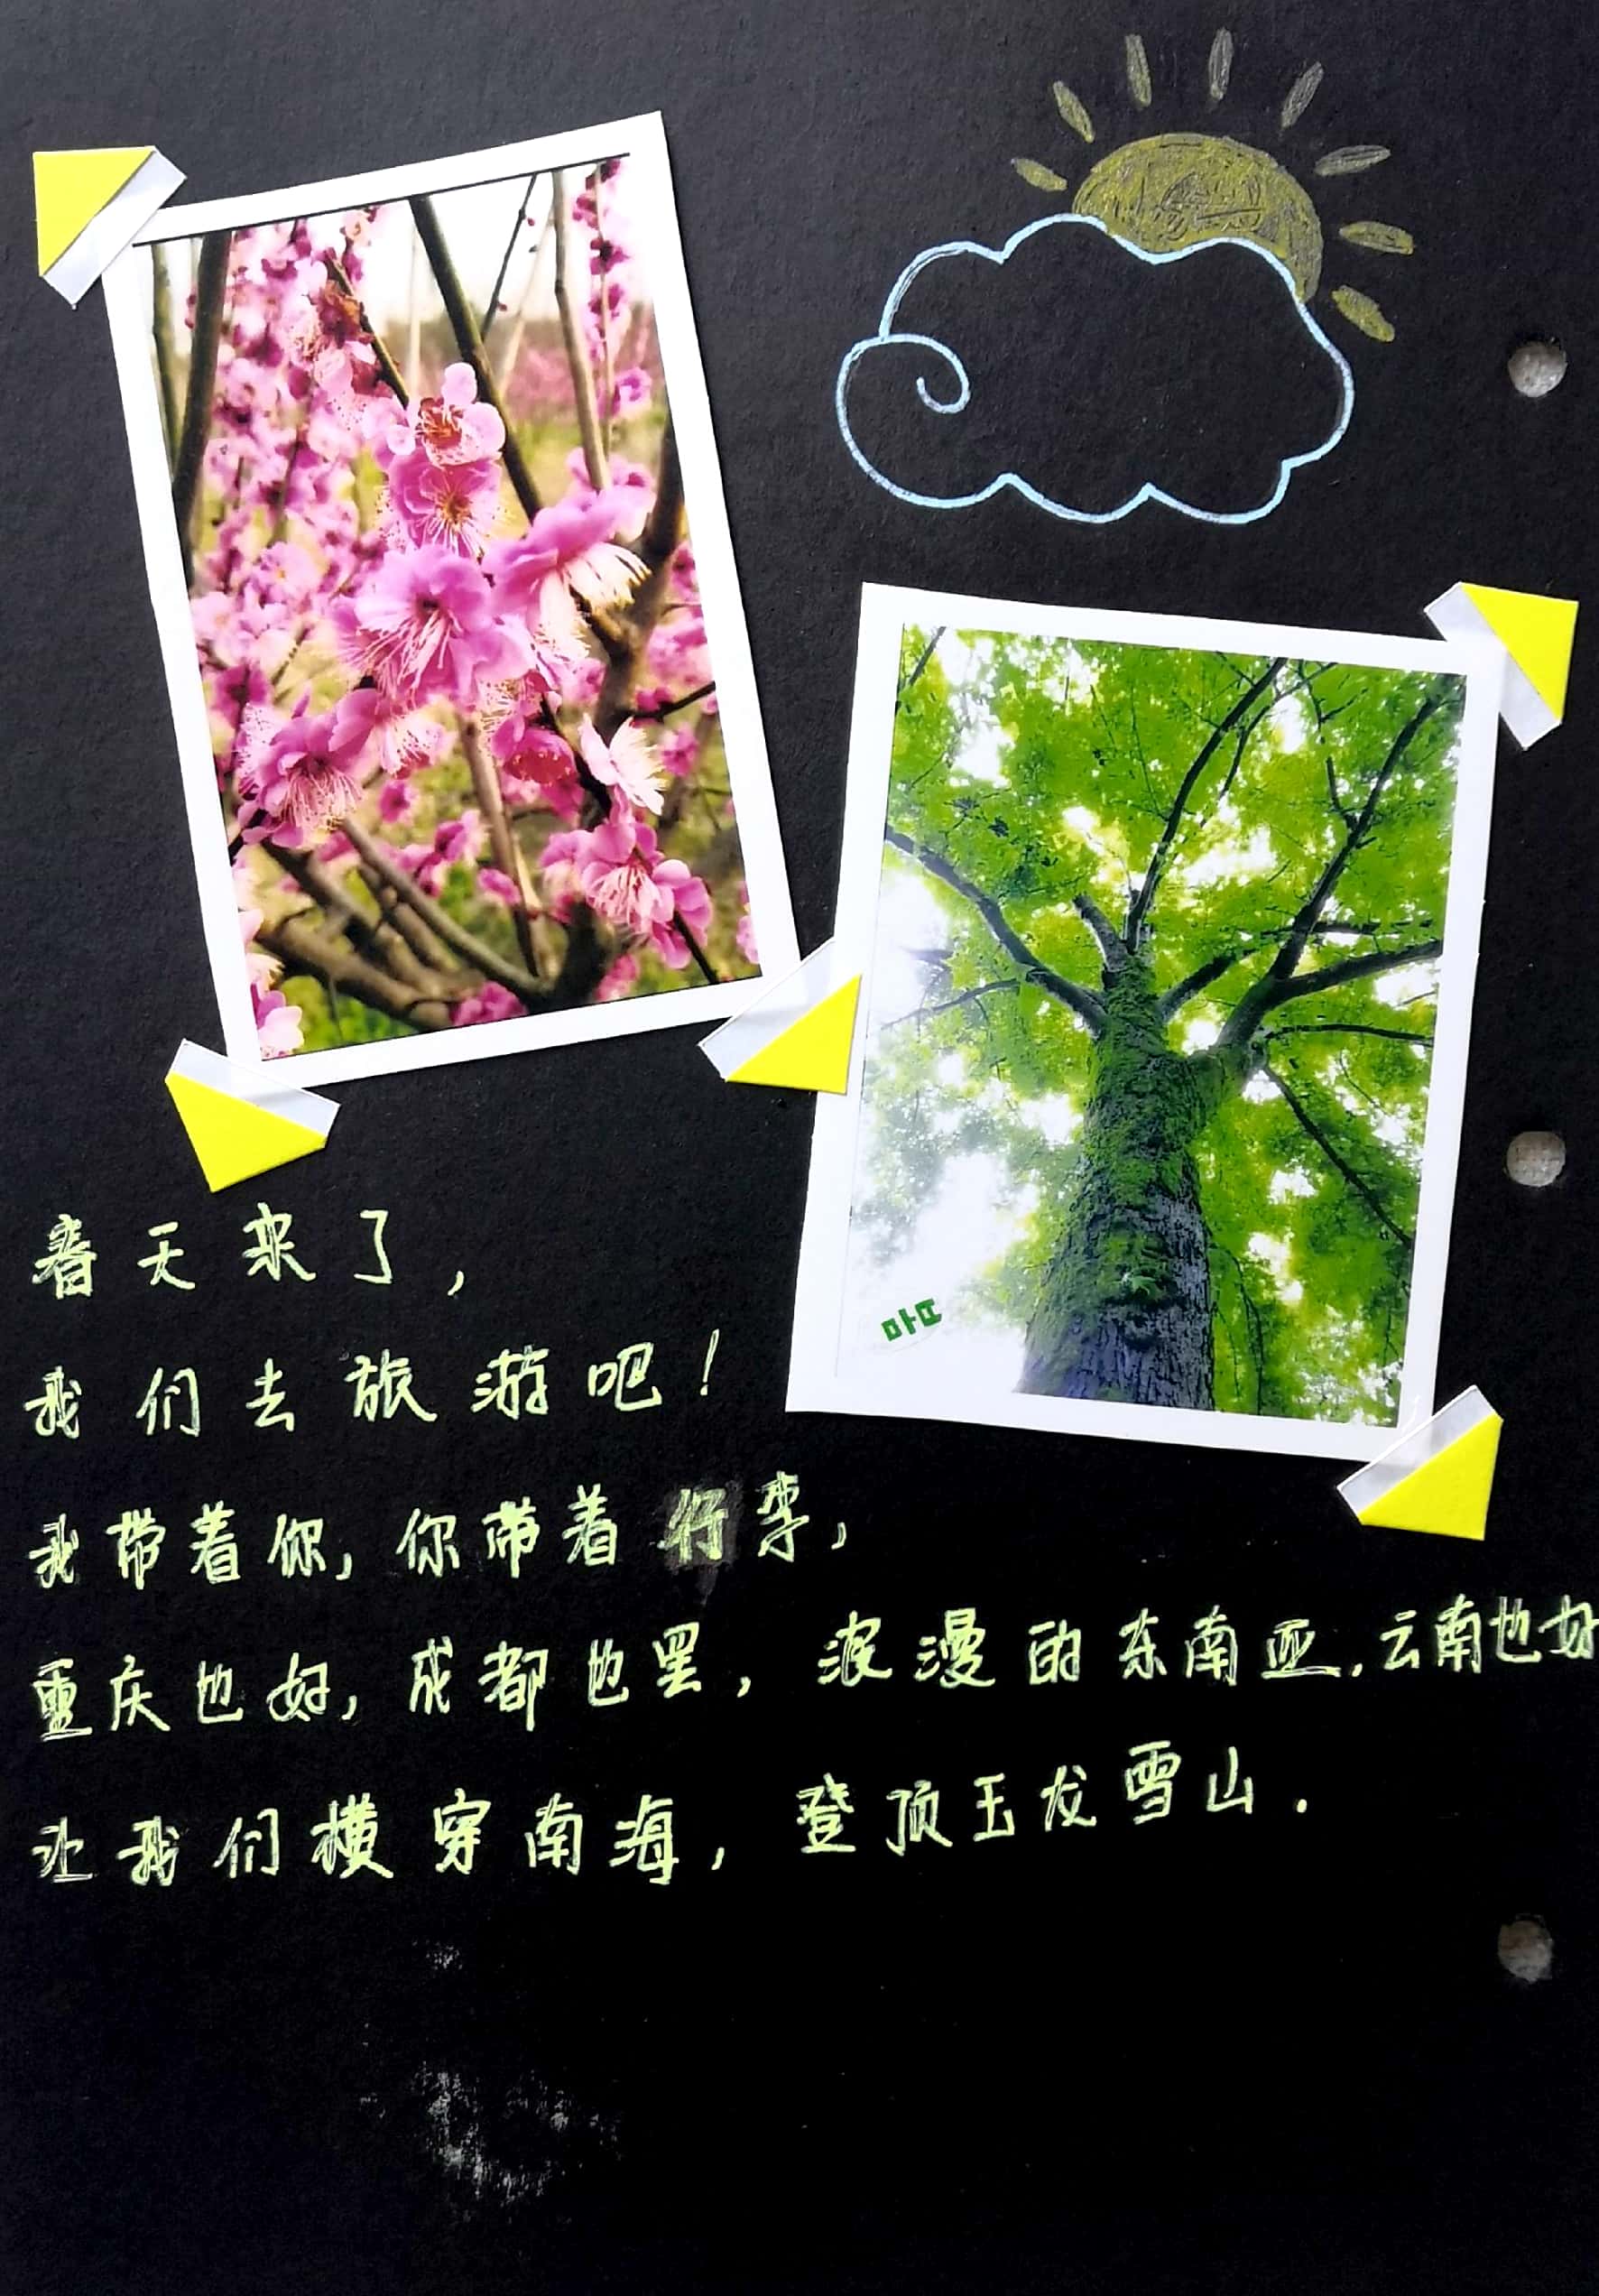 春天来了，
我们去旅游吧！
我带着你，你带着行李，
重庆也好，成都也罢，浪漫的东南亚，云南也好
让我们横穿南海，登顶玉龙雪山.